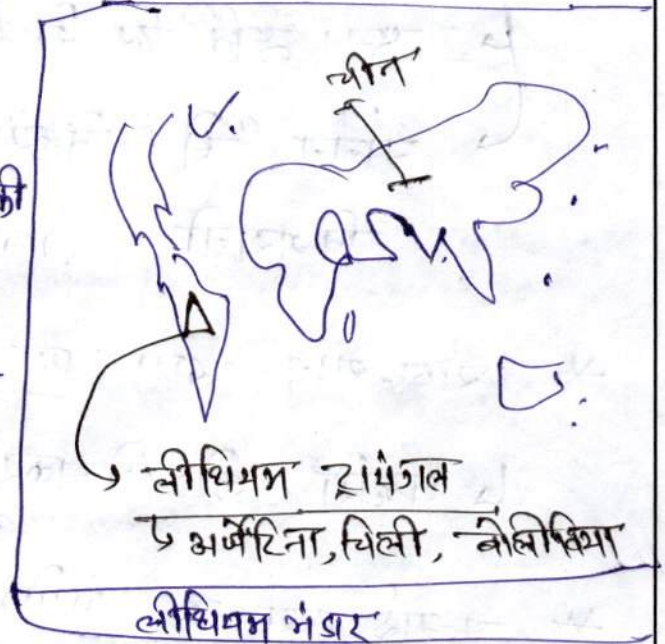 चीन
की
लीथियम ट्रायंगल
↳ अर्जेंटिना, चिली, बोलीविया
लीथियम भंडार